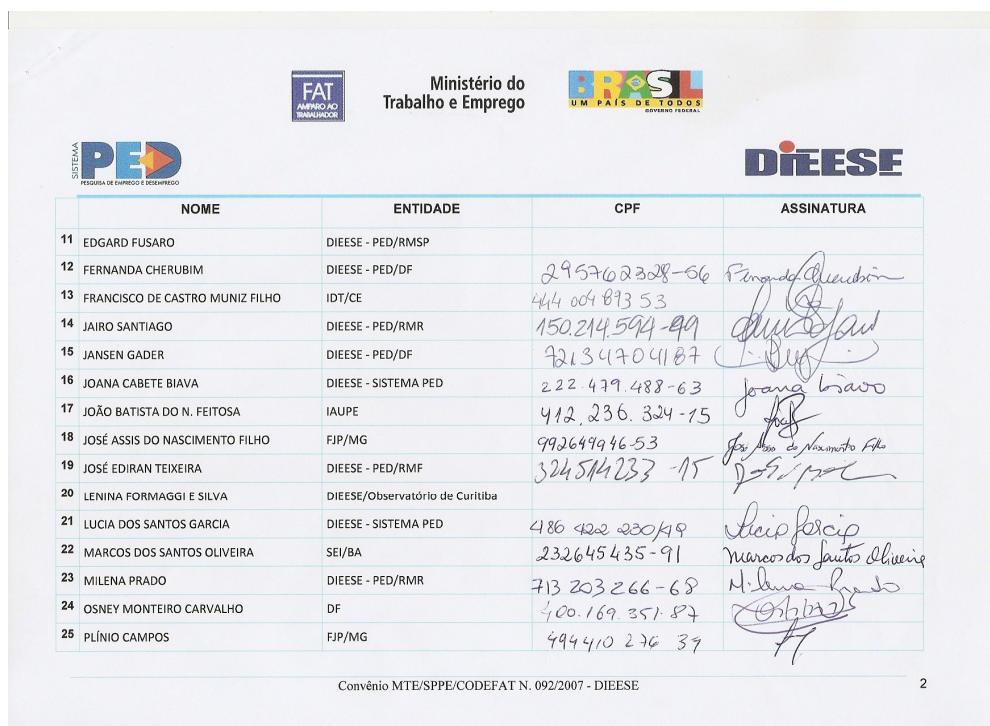 FAT
AMPARO AO
TRABALHADOR
Ministério do
Trabalho e Emprego
BRASIL
UM PAÍS DE TODOS
GOVERNO FEDERAL
SISTEMA
PED
PESQUISA DE EMPREGO E DESEMPREGO
DIEESE
NOME ENTIDADE CPF ASSINATURA
11 EDGARD FUSARO DIEESE - PED/RMSP
12 FERNANDA CHERUBIM DIEESE - PED/DF 295762328-56 Fernanda Cherubim
13 FRANCISCO DE CASTRO MUNIZ FILHO IDT/CE 444 004 893 53
14 JAIRO SANTIAGO DIEESE - PED/RMR 150.214.594-99
15 JANSEN GADER DIEESE - PED/DF 72134704187
16 JOANA CABETE BIAVA DIEESE - SISTEMA PED 222.479.488-63 Joana Biava
17 JOÃO BATISTA DO N. FEITOSA IAUPE 412.236.324-15
18 JOSÉ ASSIS DO NASCIMENTO FILHO FJP/MG 992649946-53 José Assis do Nascimento Filho
19 JOSÉ EDIRAN TEIXEIRA DIEESE - PED/RMF 324514233-15
20 LENINA FORMAGGI E SILVA DIEESE/Observatório de Curitiba
21 LUCIA DOS SANTOS GARCIA DIEESE - SISTEMA PED 486 422 230/49 Lucia Garcia
22 MARCOS DOS SANTOS OLIVEIRA SEI/BA 232645435-91 Marcos dos Santos Oliveira
23 MILENA PRADO DIEESE - PED/RMR 713 203 266-68 Milena Prado
24 OSNEY MONTEIRO CARVALHO DF 400.169.351.87
25 PLÍNIO CAMPOS FJP/MG 494410 276 34
Convênio MTE/SPPE/CODEFAT N. 092/2007 - DIEESE 2